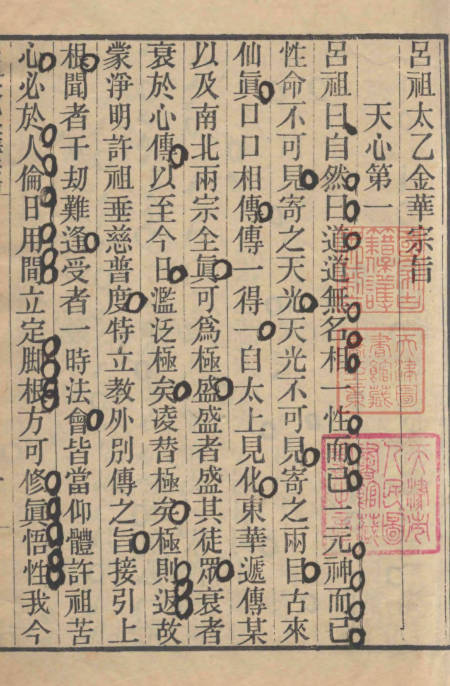 呂祖太乙金華宗旨
天心第一
呂祖曰自然曰道道無名相一性而已一元神而已
性命不可見寄之天光天光不可見寄之兩目古來
仙眞口口相傳傳一得一自太上見化東華遞傳某
以及南北兩宗全眞可爲極盛盛者盛其徒眾衰者
衰於心傳以至今日濫泛極矣凌替極矣極則返故
蒙淨明許祖垂慈普度特立教外別傳之旨接引上
根聞者千劫難逢受者一時法會皆當仰體許祖苦
心必於人倫日用間立定脚根方可修眞悟性我今